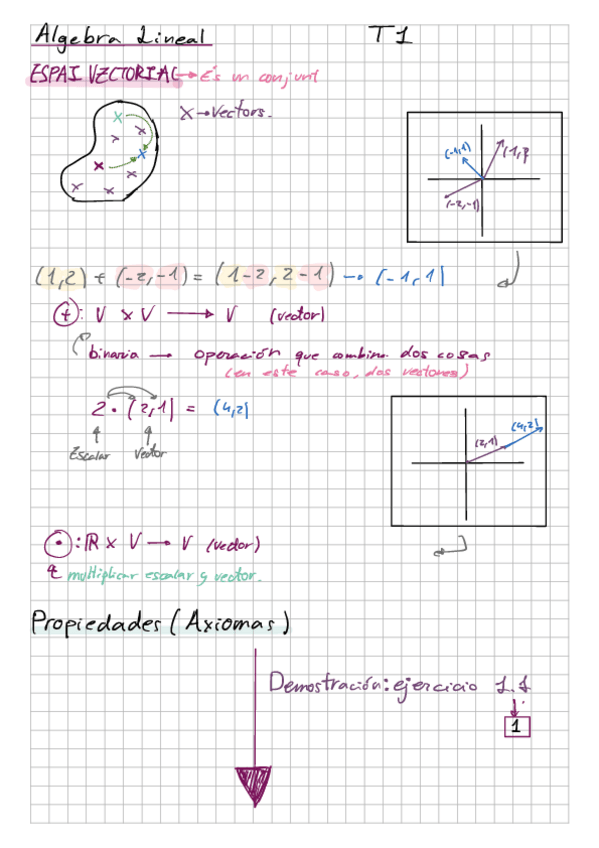 Algebra Lineal T1
ESPAI VECTORIAL → És un conjunt
x → Vectors.
(-1,1) (1,
(-2,-1)
(1,2) + (-2,-1) = (1-2, 2-1) → (-1,1)
(+): V x V → V (vector)
binaria → Operación que combina dos cosas
(en este caso, dos vectores)
2 · (2,1) = (4,2)
Escalar Vector
(2,1) (4,2)
(·): ℝ x V → V (vector)
multiplicar escalar y vector.
Propiedades (Axiomas)
Demostración: ejercicio 1.1
1